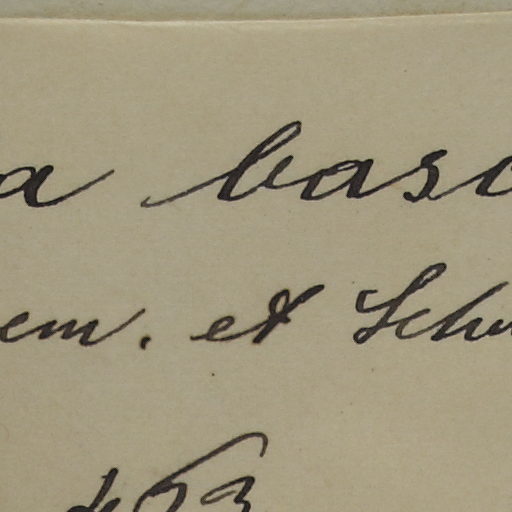 a basc
em. et Sch